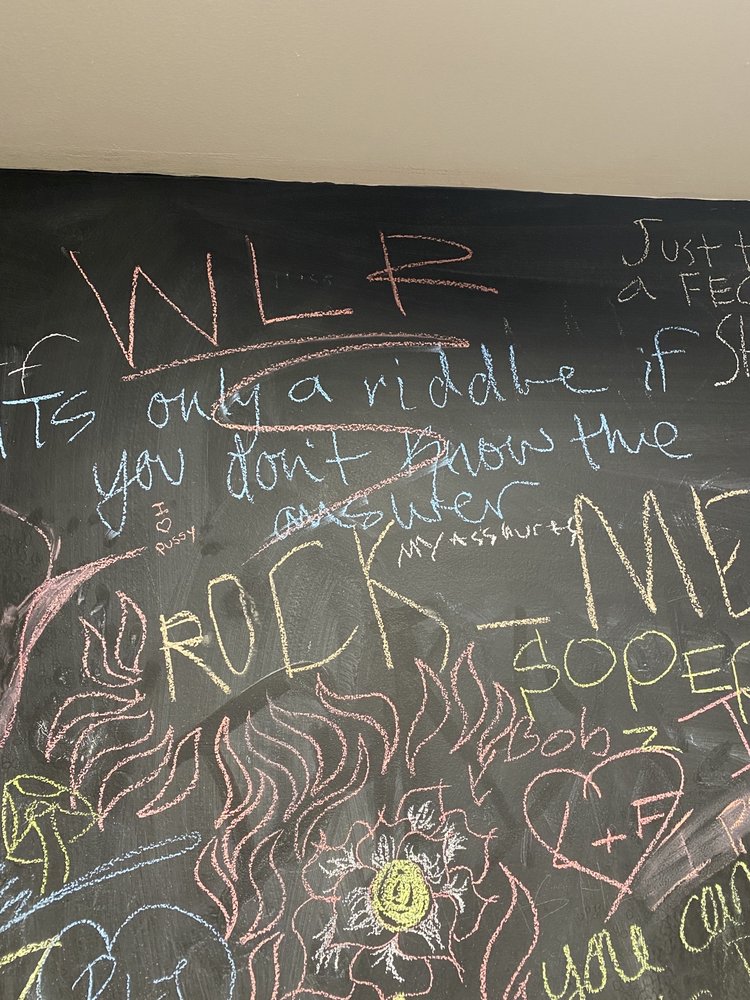 WLR
Just
a FEC
Its only a riddle if
you don't know the
answer
I ♡
pussy
MY ass hurts
ROCK_ME
SOPE
Bob
L+F
you can